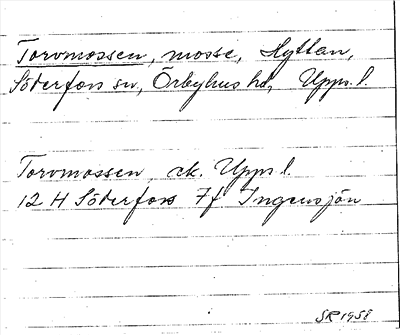 Torvmossen, mosse, Hyttan,
Söderfors sn, Örbyhus hd, Upps. l.
Torvmossen, ek. Upps l.
12 H Söderfors 7f Ingensjön
SR 1958